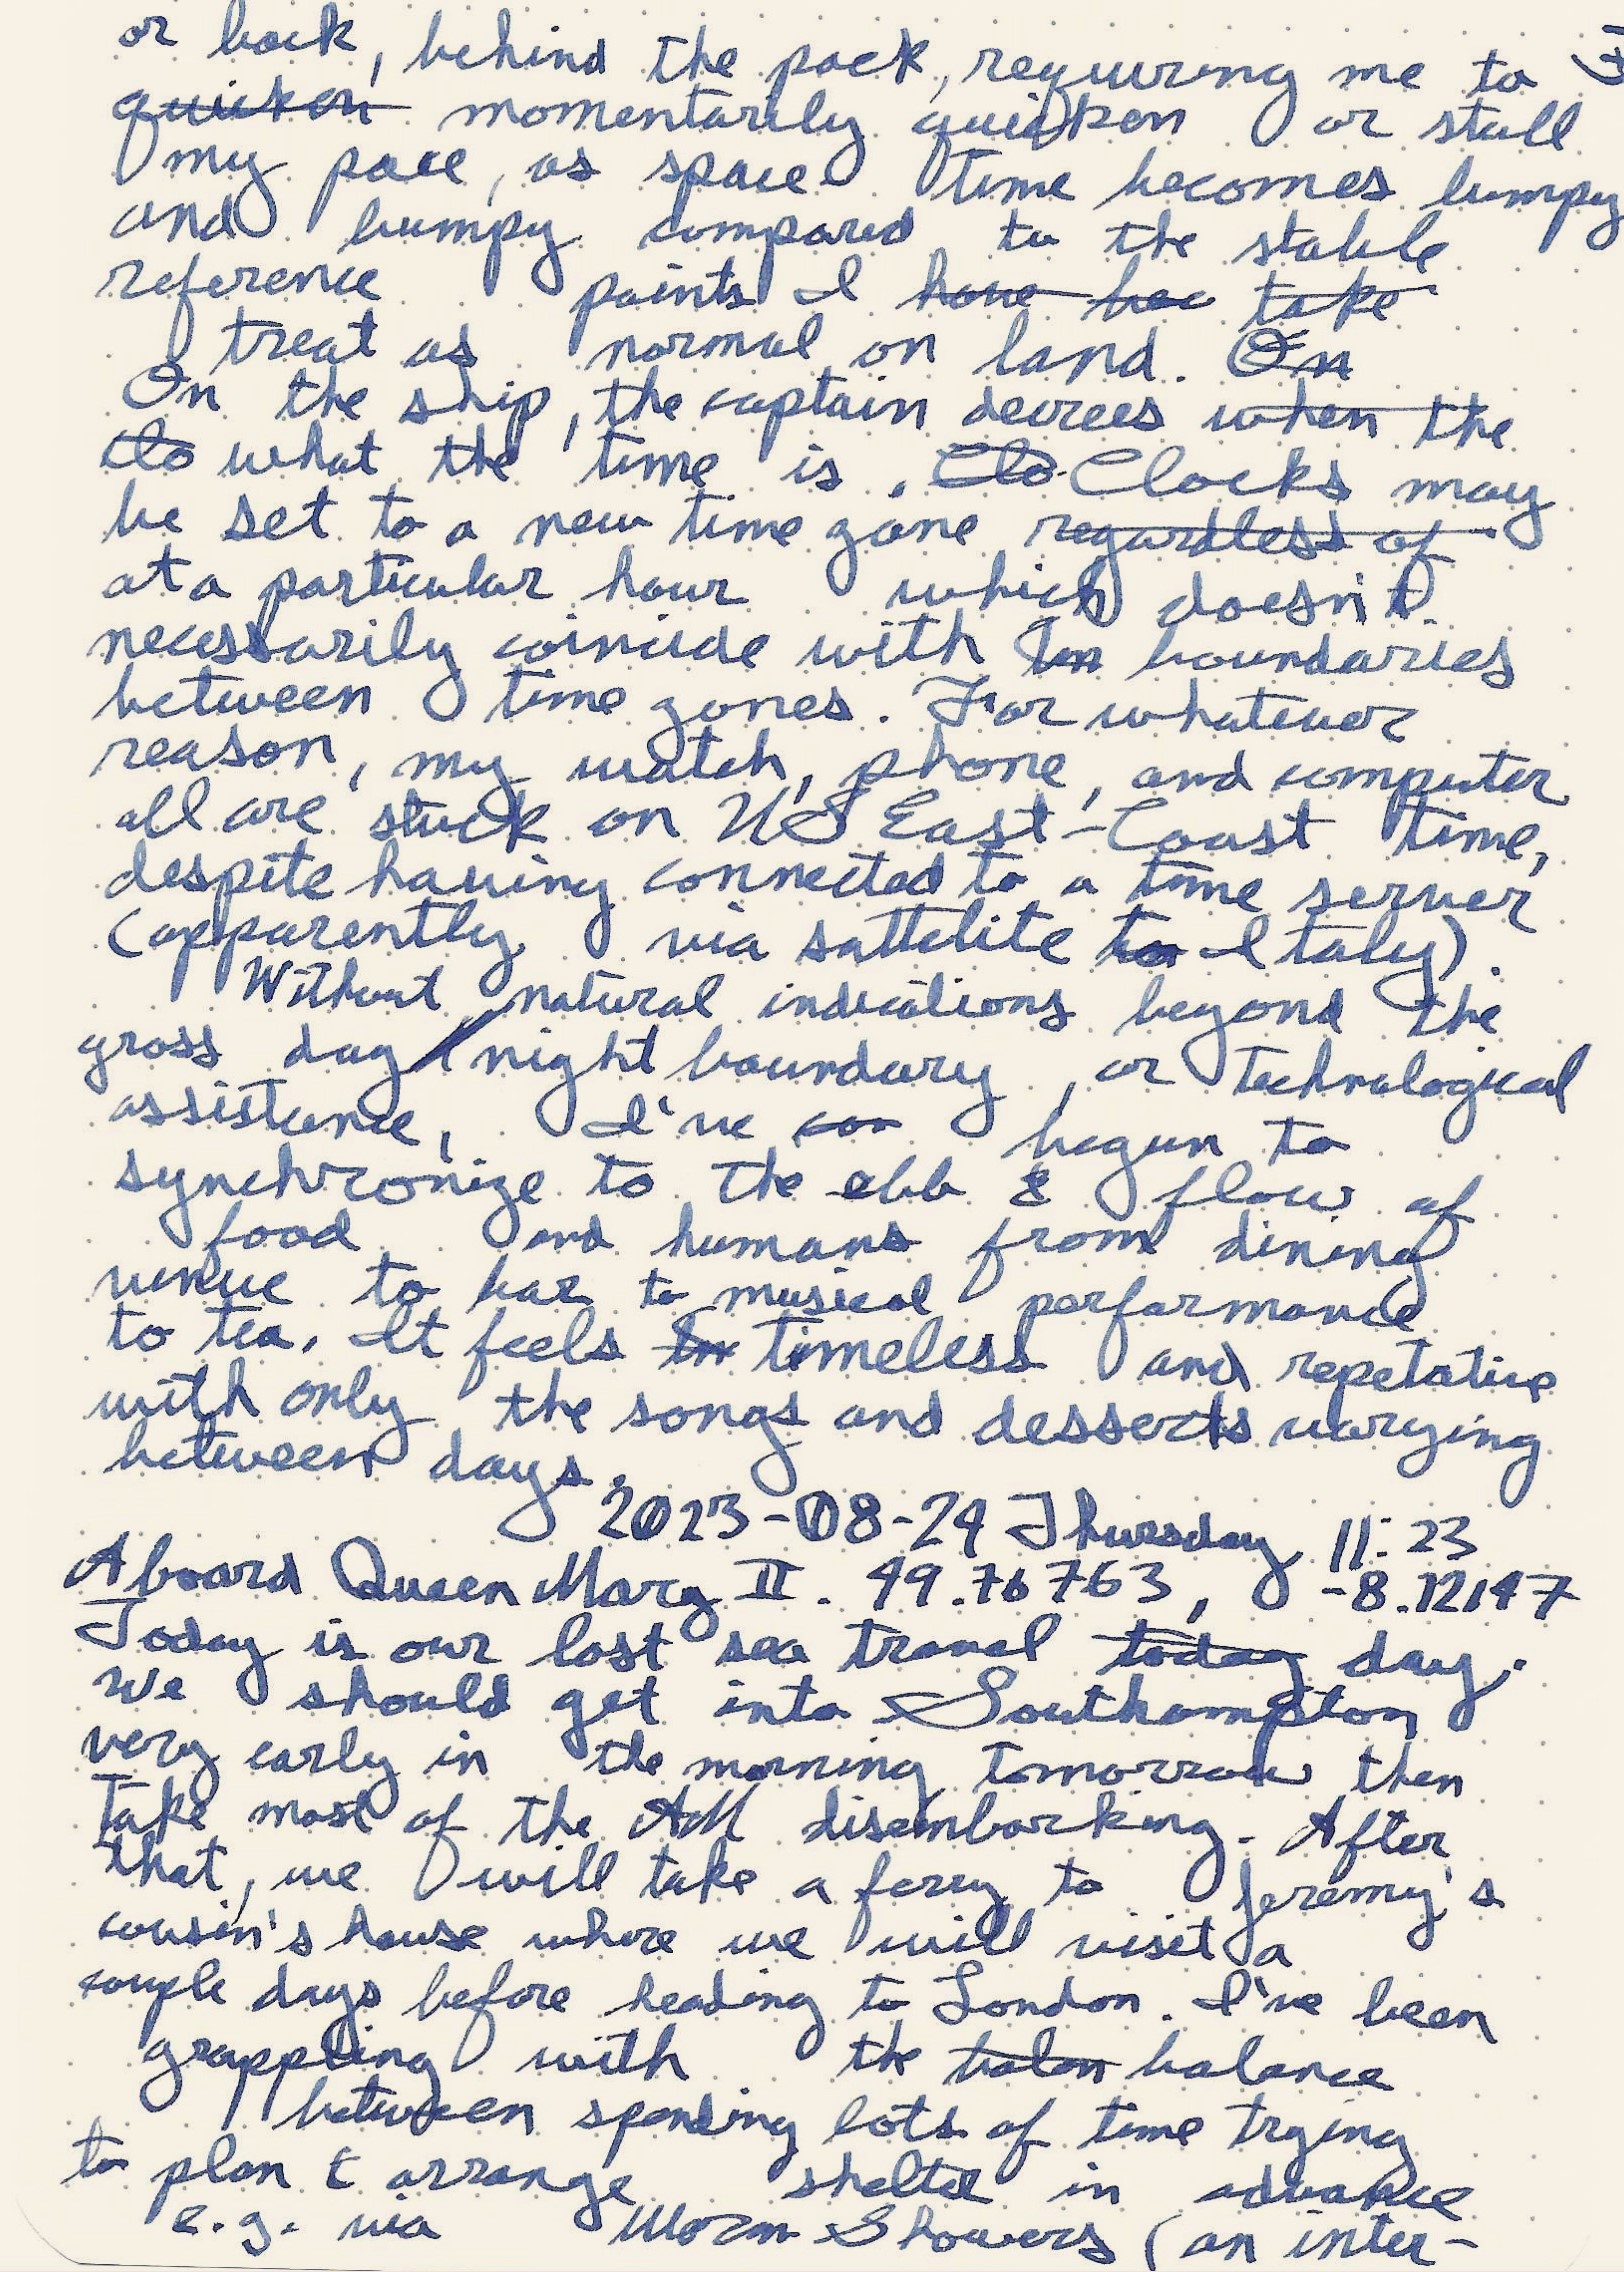 or back, behind the pack, requiring me to
quicken momentarily quicken or stall
my pace, as space time becomes lumpy
and bumpy compared to the stable
reference points I have bec take
treat as normal on land. On
On the ship, the captain decrees when the
clo what the time is. Clo Clocks may
be set to a new time zone regardless of
at a particular hour which doesn't
necessarily coincide with boundaries
between time zones. For whatever
reason, my watch, phone, and computer
all are stuck on US East-Coast time,
despite having connected to a time server
(apparently via sattelite to Italy).
Without natural indications beyond the
gross day/night boundary, or technological
assistance, I've begun to
synchronize to the ebb & flow of
food and humans from dining
venue to bar to musical performance
to tea. It feels timeless and repetative
with only the songs and desserts varying
between days.
2023-08-24 Thursday 11:23
Aboard Queen Mary II. 49.76763, -8.12147
Today is our last sea travel today day.
We should get into Southampton
very early in the morning tomorrow then
take most of the AM disembarking. After
that, we will take a ferry to Jeremy's
cousin's house where we will visit a
couple days before heading to London. I've been
grappling with the balan balance
between spending lots of time trying
to plan & arrange shelter in advance
e.g. via Warm Showers (an inter-